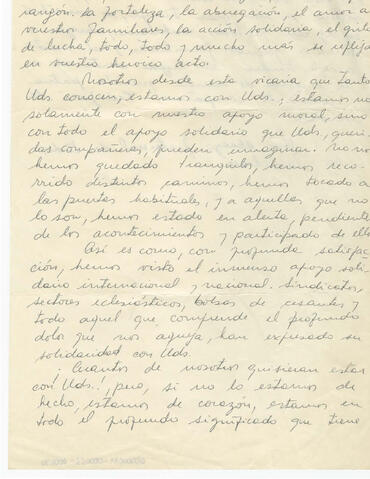 rangón. La fortaleza, la abnegación, el amor a
vuestros familiares, la acción solidaria, el grito
de lucha, todo, todo y mucho más se refleja
en vuestro heroico acto.
Nosotros desde esta vicaría que tanto
Uds. conocen, estamos con Uds.; estamos no
solamente con nuestro apoyo moral, sino
con todo el apoyo solidario que Uds, queri-
das compañeras, pueden imaginar. No nos
hemos quedado tranquilos, hemos reco-
rrido distintos caminos, hemos tocado a
las puertas habituales, y a aquellas que no
lo son, hemos estado en alerta, pendiente
de los acontecimientos y participado de ello
Así es como, con profunda satisfac-
ción, hemos visto el inmenso apoyo soli-
dario internacional y nacional. Sindicatos,
sectores eclesiásticos, bolsas de cesantes y
todo aquel que comprende el profundo
dolor que nos aqueja, han expresado su
solidaridad con Uds.
¡Cuantos de nosotros quisieran estar
con Uds.!, pero, si no lo estamos de
hecho, estamos de corazón, estamos en
todo el profundo significado que tiene